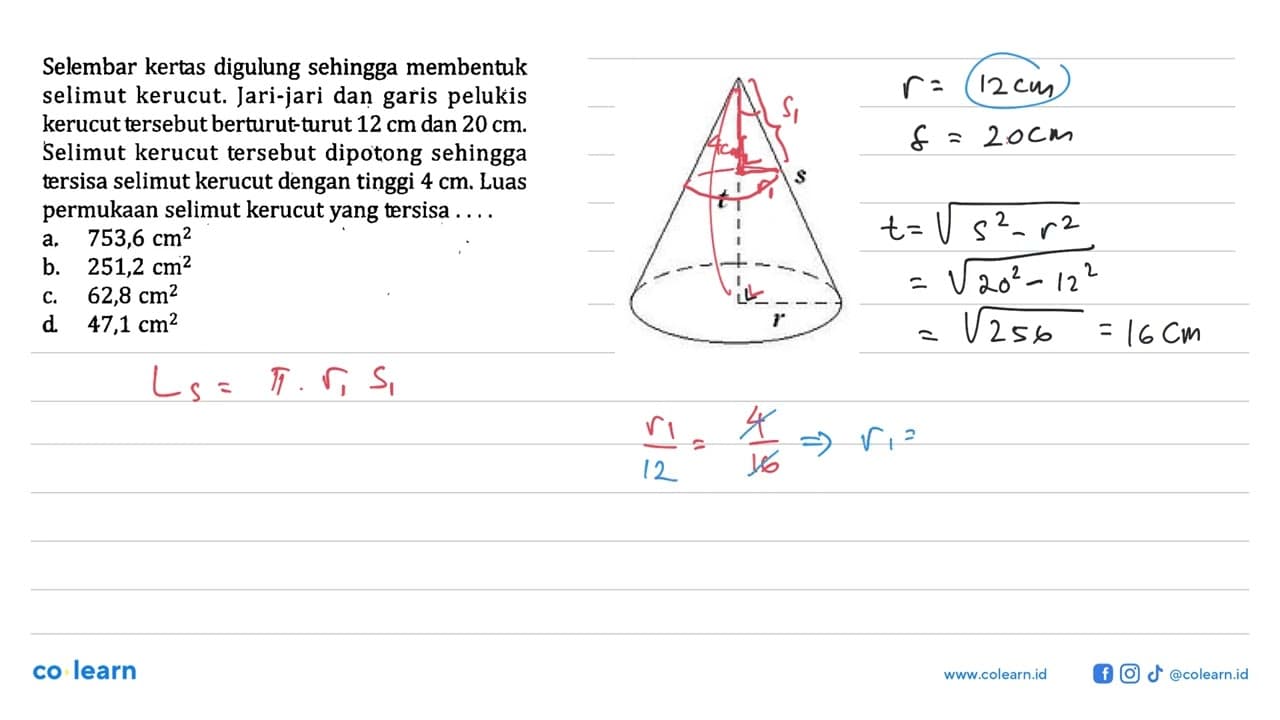 Selembar kertas digulung sehingga membentuk
selimut kerucut. Jari-jari dan garis pelukis
kerucut tersebut berturut-turut 12 cm dan 20 cm.
Selimut kerucut tersebut dipotong sehingga
tersisa selimut kerucut dengan tinggi 4 cm. Luas
permukaan selimut kerucut yang tersisa . . . .
a. 753,6 cm²
b. 251,2 cm²
c. 62,8 cm²
d. 47,1 cm²
s₁
4cm
r₁
s
t
r
r = 12 cm
s = 20 cm
t = √s² - r²
= √20² - 12²
= √256 = 16 cm
Ls = π . r₁ s₁
r₁/12 = 4/16 ⇒ r₁ =
co learn
www.colearn.id
@colearn.id